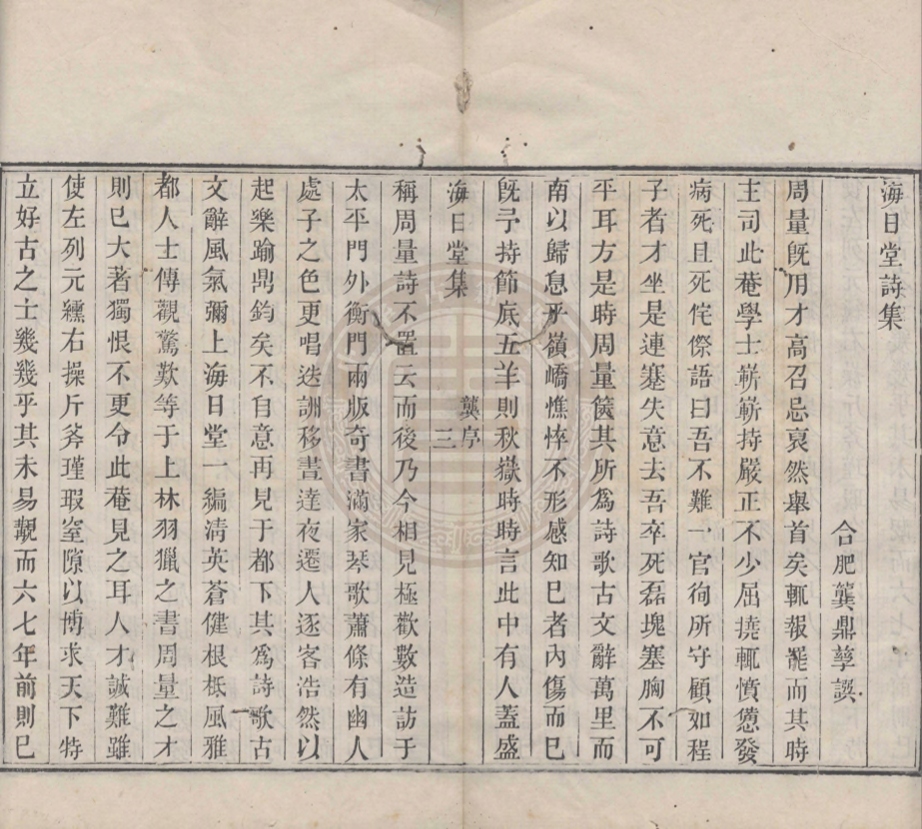 海日堂詩集
合肥龔鼎孳譔
周量旣用才高召忌裒然舉首矣輒報罷而其時
主司此菴學士嶄嶄持嚴正不少屈撓輒憤懣發
病死且死侘傺語曰吾不難一官徇所守顧如程
子者才坐是連蹇失意去吾卒死磊塊塞胸不可
平耳方是時周量篋其所爲詩歌古文辭萬里而
南以歸息乎嶺嶠憔悴不形感知巳者內傷而巳
旣予持節底五羊則秋嶽時時言此中有人蓋盛
海日堂集
龔序
三
稱周量詩不置云而後乃今相見極歡數造訪于
太平門外衡門兩版奇書滿家琴歌蕭條有幽人
處子之色更唱迭詶移晝達夜遷人逐客浩然以
起樂踰鼎鈞矣不自意再見于都下其爲詩歌古
文辭風氣彌上海日堂一編淸英蒼健根柢風雅
都人士傳觀驚歎等于上林羽獵之書周量之才
則巳大著獨恨不更令此菴見之耳人才誠難雖
使左列元纁右操斤斧瑾瑕窒隙以博求天下特
立好古之士幾幾乎其未易覯而六七年前則巳